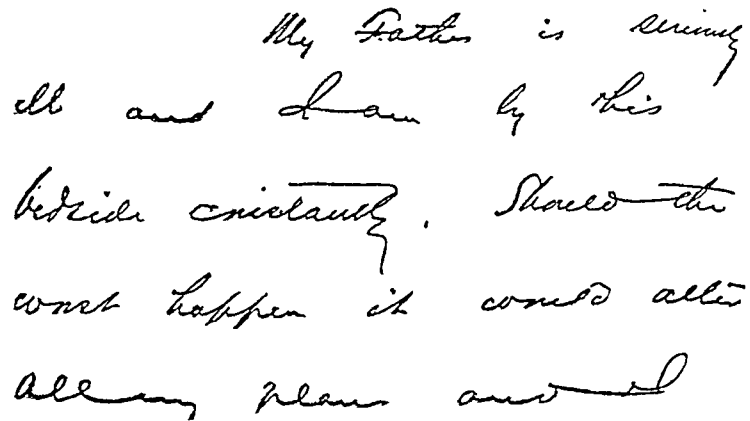 My Father is seriously
ill and I am by his
bedside constantly. Should the
worst happen it would alter
all my plans and I